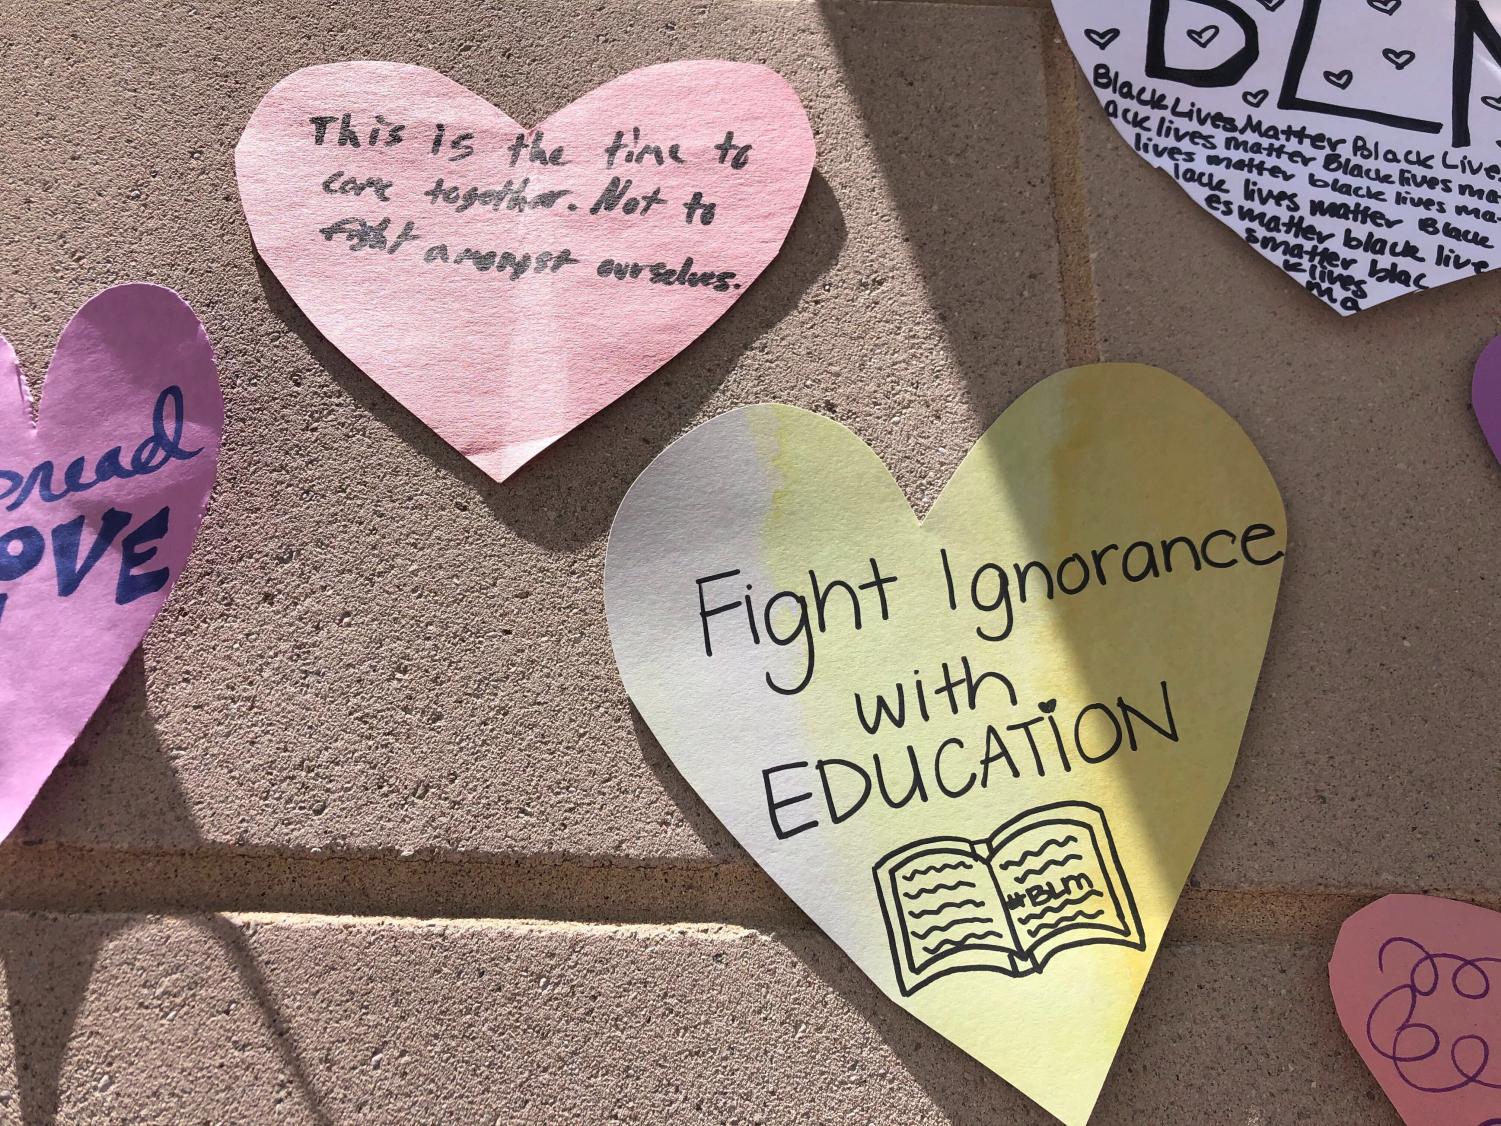 This is the time to
come together. Not to
fight amongst ourselves.
BLM
Black Lives Matter Black Lives
ack lives matter Black lives ma
lives matter black lives ma
lack lives matter Black
es matter black live
smatter blac
k lives
ma
pread
OVE
Fight Ignorance
with
EDUCATION
#BLM